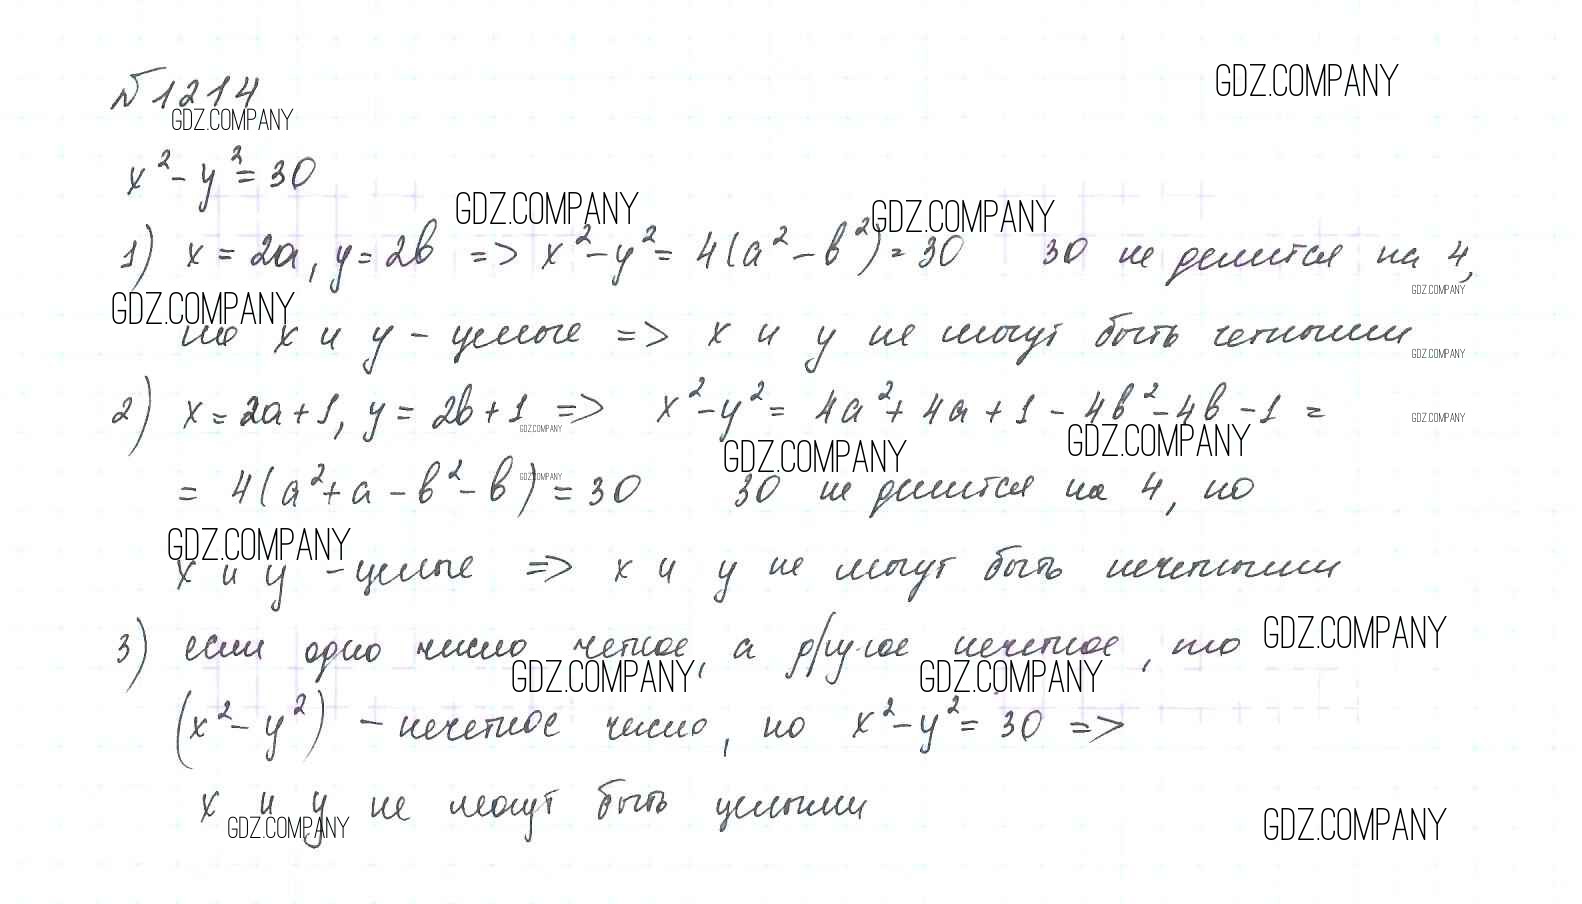 №1214
GDZ.COMPANY
GDZ.COMPANY
x² - y² = 30
GDZ.COMPANY
GDZ.COMPANY
1) x = 2a, y = 2b => x² - y² = 4(a² - b²) = 30 30 не делится на 4,
GDZ.COMPANY
GDZ.COMPANY
но x и y - целые => x и y не могут быть четными
GDZ.COMPANY
2) x = 2a + 1, y = 2b + 1 => x² - y² = 4a² + 4a + 1 - 4b² - 4b - 1 =
GDZ.COMPANY
GDZ.COMPANY
GDZ.COMPANY
GDZ.COMPANY
= 4(a² + a - b² - b) = 30 30 не делится на 4, но
GDZ.COMPANY
GDZ.COMPANY
x и y - целые => x и y не могут быть нечетными
3) если одно число четное, а другое нечетное, то
GDZ.COMPANY
GDZ.COMPANY
GDZ.COMPANY
(x² - y²) - нечетное число, но x² - y² = 30 =>
x и y не могут быть целыми
GDZ.COMPANY
GDZ.COMPANY